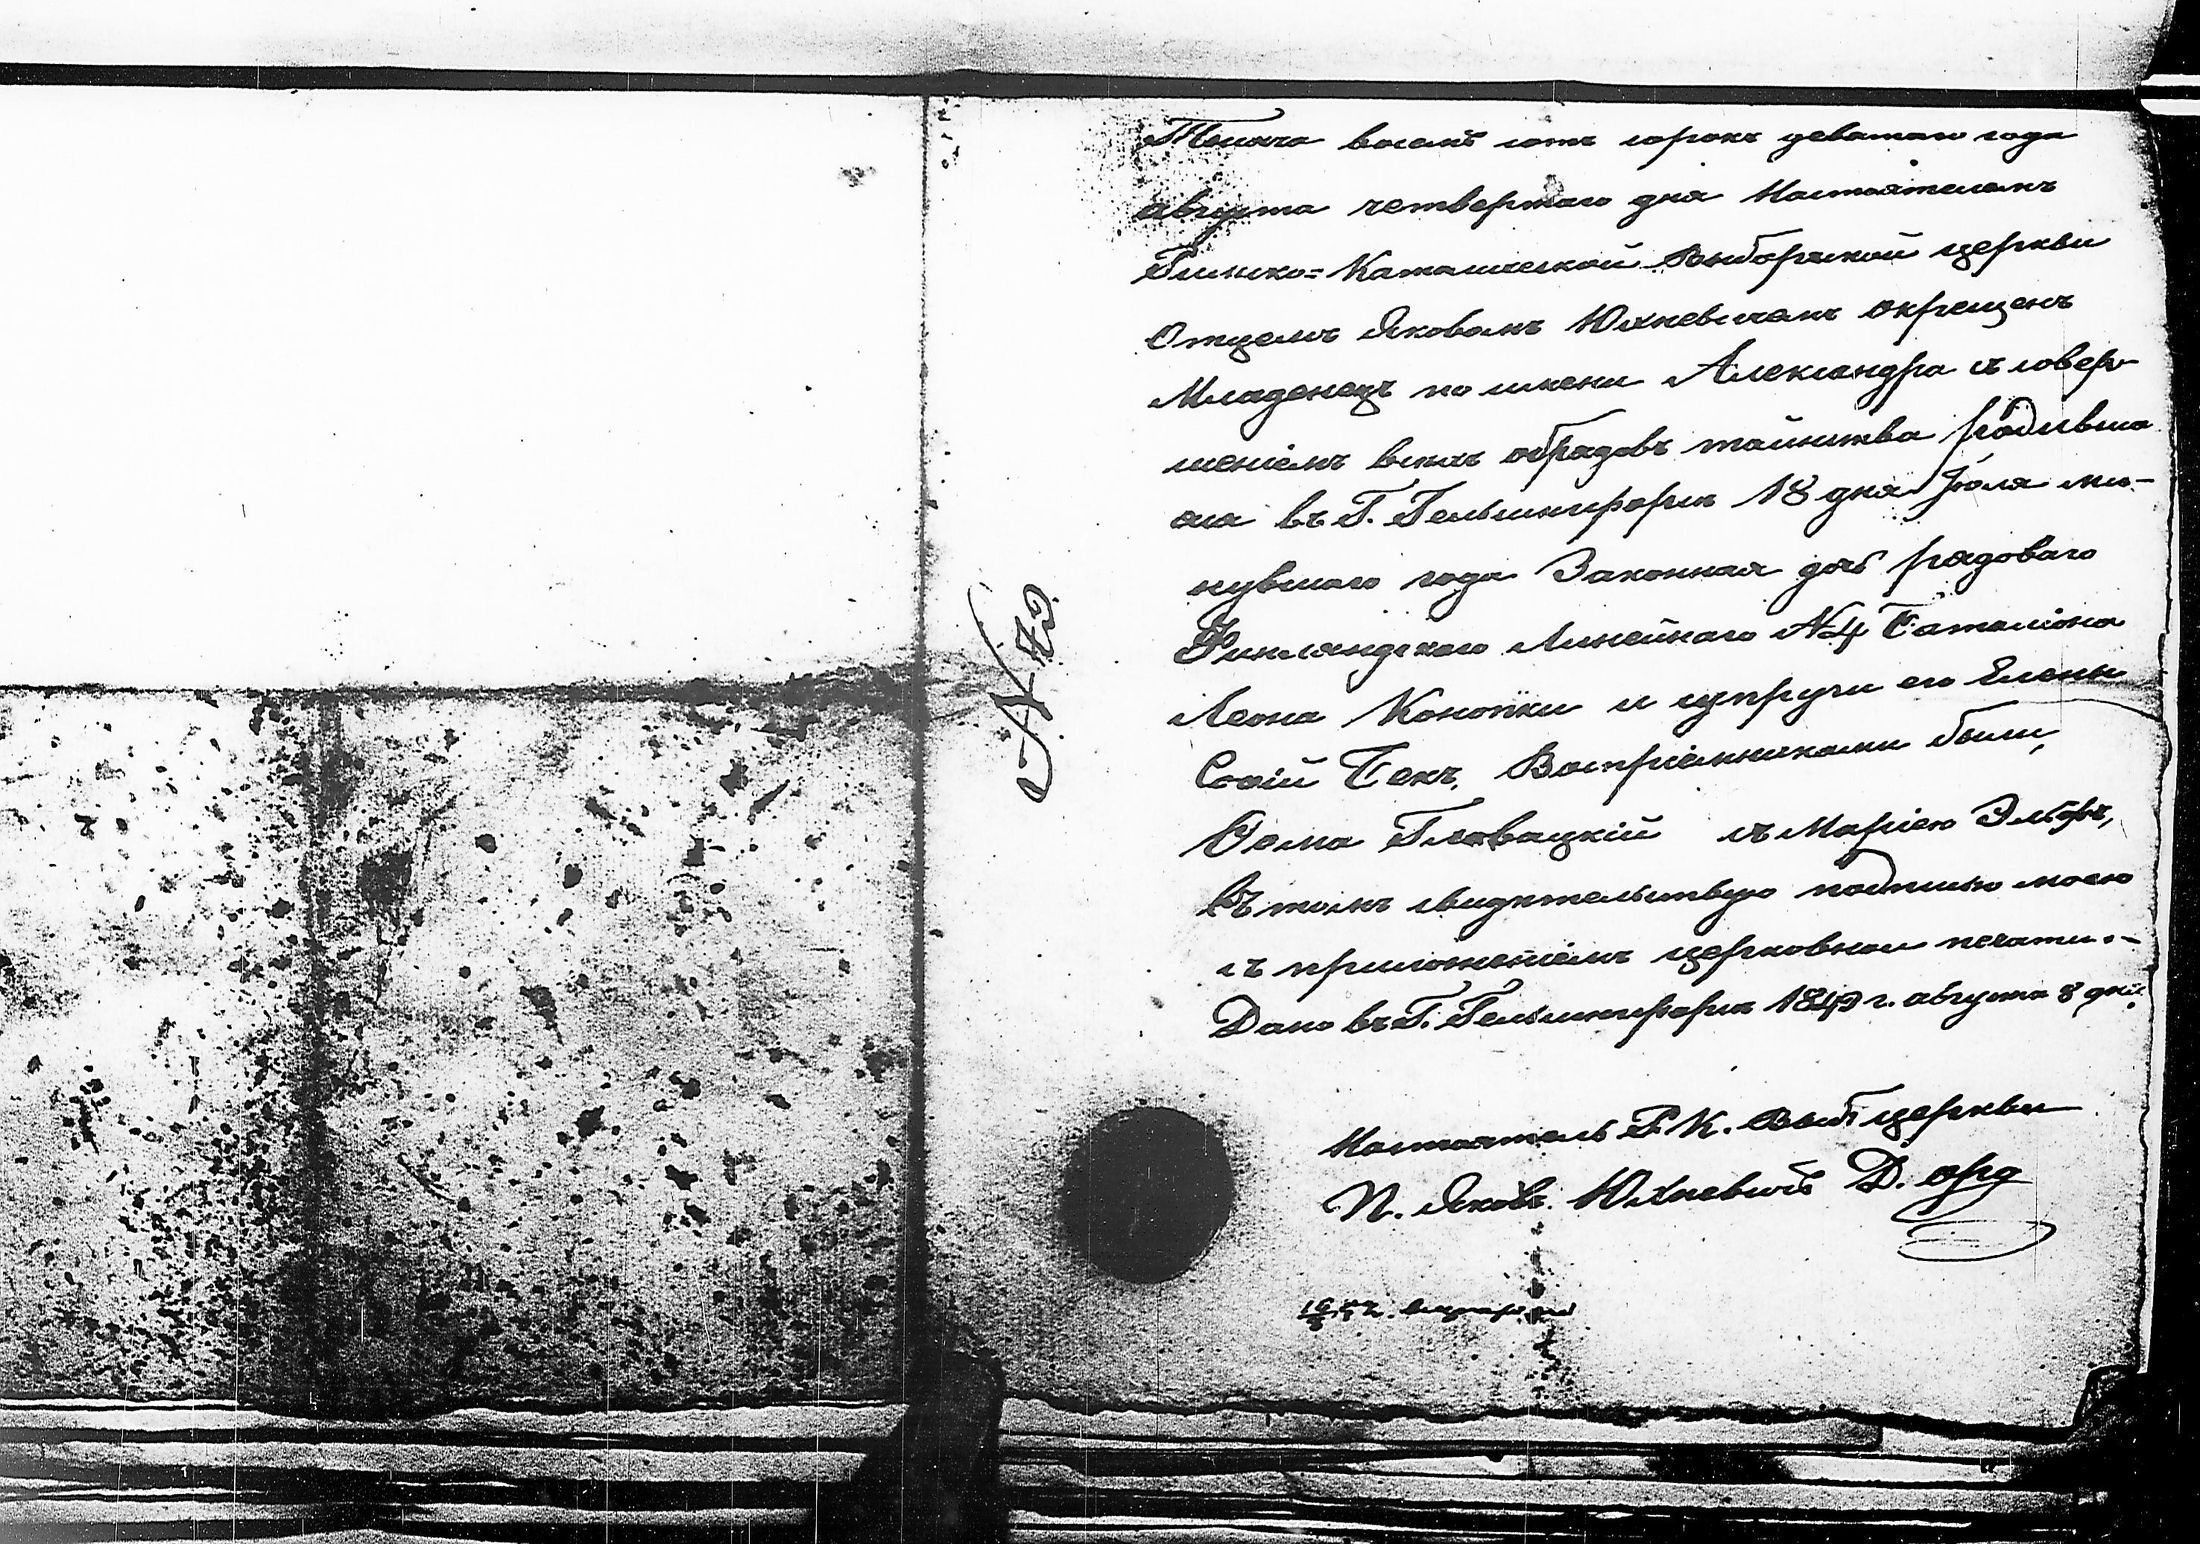 Тысяча восемь сотъ сорокъ девятаго года
августа четвертаго дня Настоятелемъ
Римско=Католической Выборгской церкви
Отцемъ Яковомъ Юхневичемъ окрещенъ
Младенецъ по имени Александра съ совер-
шеніемъ всехъ обрядовъ таинства родивша
аяся въ Г. Гельсингфорсѣ 18 дня Іюля ми-
нувшаго года Законная дочь рядоваго
Финляндскаго Линейнаго №4 Баталіона
Леона Конопки и супруги его Елены
Софіи Бекъ. Воспріемниками были,
Ѳома Гловацкій съ Маріею
въ томъ свидѣтельствую подписью моею
съ приложеніемъ церковной печати.-
Дано въ Г. Гельсингфорсѣ 1849 г. августа 8 дня.
Настоятель Р. К. Выб церкви
П. Яковъ Юхневичъ Д. орд
№ 73